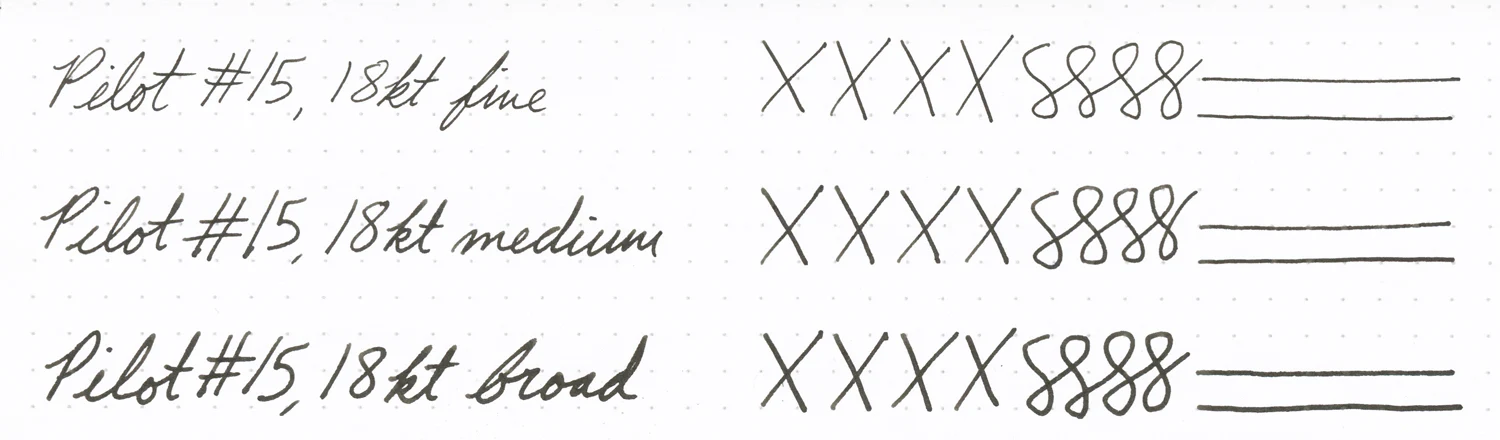 Pilot #15, 18kt fine XXXX 8888
Pilot #15, 18kt medium XXXX 8888
Pilot #15, 18kt broad XXXX 8888